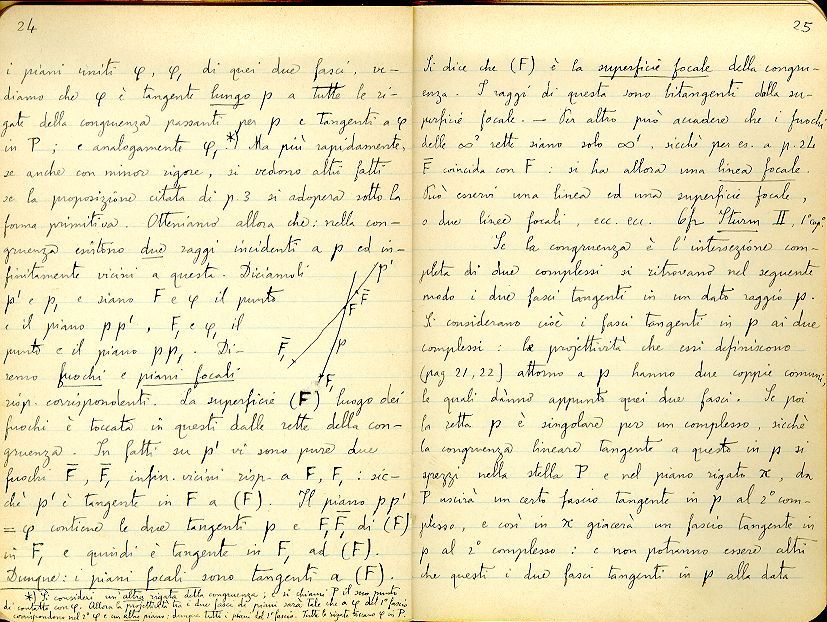 24
i piani uniti φ, φ₁ di quei due fasci, ve-
diamo che φ è tangente lungo p a tutte le ri-
gate della congruenza passanti per p e tangenti a φ
in P; e analogamente φ₁.*) Ma più rapidamente,
se anche con minor rigore, si vedono altri fatti
se la proposizione citata di p. 3 si adopera sotto la
forma primitiva. Otteniamo allora che: nella con-
gruenza esistono due raggi incidenti a p ed in-
finitamente vicini a questa. Diciamoli
p' e p₁ e siano F e φ il punto
e il piano pp', F₁ e φ₁ il
punto e il piano pp₁. Di-
remo fuochi e piani focali
risp. corrispondenti. La superficie (F) luogo dei
fuochi è toccata in questi dalle rette della con-
gruenza. In fatti su p' vi sono pure due
fuochi F̅, F̅₁ infin. vicini risp. a F, F₁: sic-
chè p' è tangente in F a (F). Il piano pp'
= φ contiene le due tangenti p e F₁F̅₁ di (F)
in F₁ e quindi è tangente in F₁ ad (F).
Dunque: i piani focali sono tangenti a (F).
*) Si consideri un'altra rigata della congruenza; e si chiami P il suo punto
di contatto con φ. Allora la proiettività tra i due fasci di piani sarà tale che a φ del 1° fascio
corrispondono nel 2° φ e un altro piano: dunque tutti i piani del 1° fascio. Tutte le rigate toccano φ in P.
p'
F̅
F
p
F̅₁
F₁
25
Si dice che (F) è la superficie focale della congru-
enza. I raggi di questa sono bitangenti della su-
perficie focale. — Per altro può accadere che i fuochi
delle ∞² rette siano solo ∞¹, sicchè per es. a p. 24
F̅ coincida con F: si ha allora una linea focale.
Può esservi una linea ed una superficie focale,
o due linee focali, ecc. ecc. Cfr Sturm II, 1° cap°
Se la congruenza è l'intersezione com-
pleta di due complessi si ritrovano nel seguente
modo i due fasci tangenti in un dato raggio p.
Si considerano cioè i fasci tangenti in p ai due
complessi: le projettività che essi definiscono
(pag 21, 22) attorno a p hanno due coppie comuni,
le quali dànno appunto quei due fasci. Se poi
la retta p è singolare per un complesso, sicchè
la congruenza lineare tangente a questo in p si
spezzi nella stella P e nel piano rigato π, da
P uscirà un certo fascio tangente in p al 2° com-
plesso, e così in π giacerà un fascio tangente in
p al 2° complesso: e non potranno essere altri
che questi i due fasci tangenti in p alla data